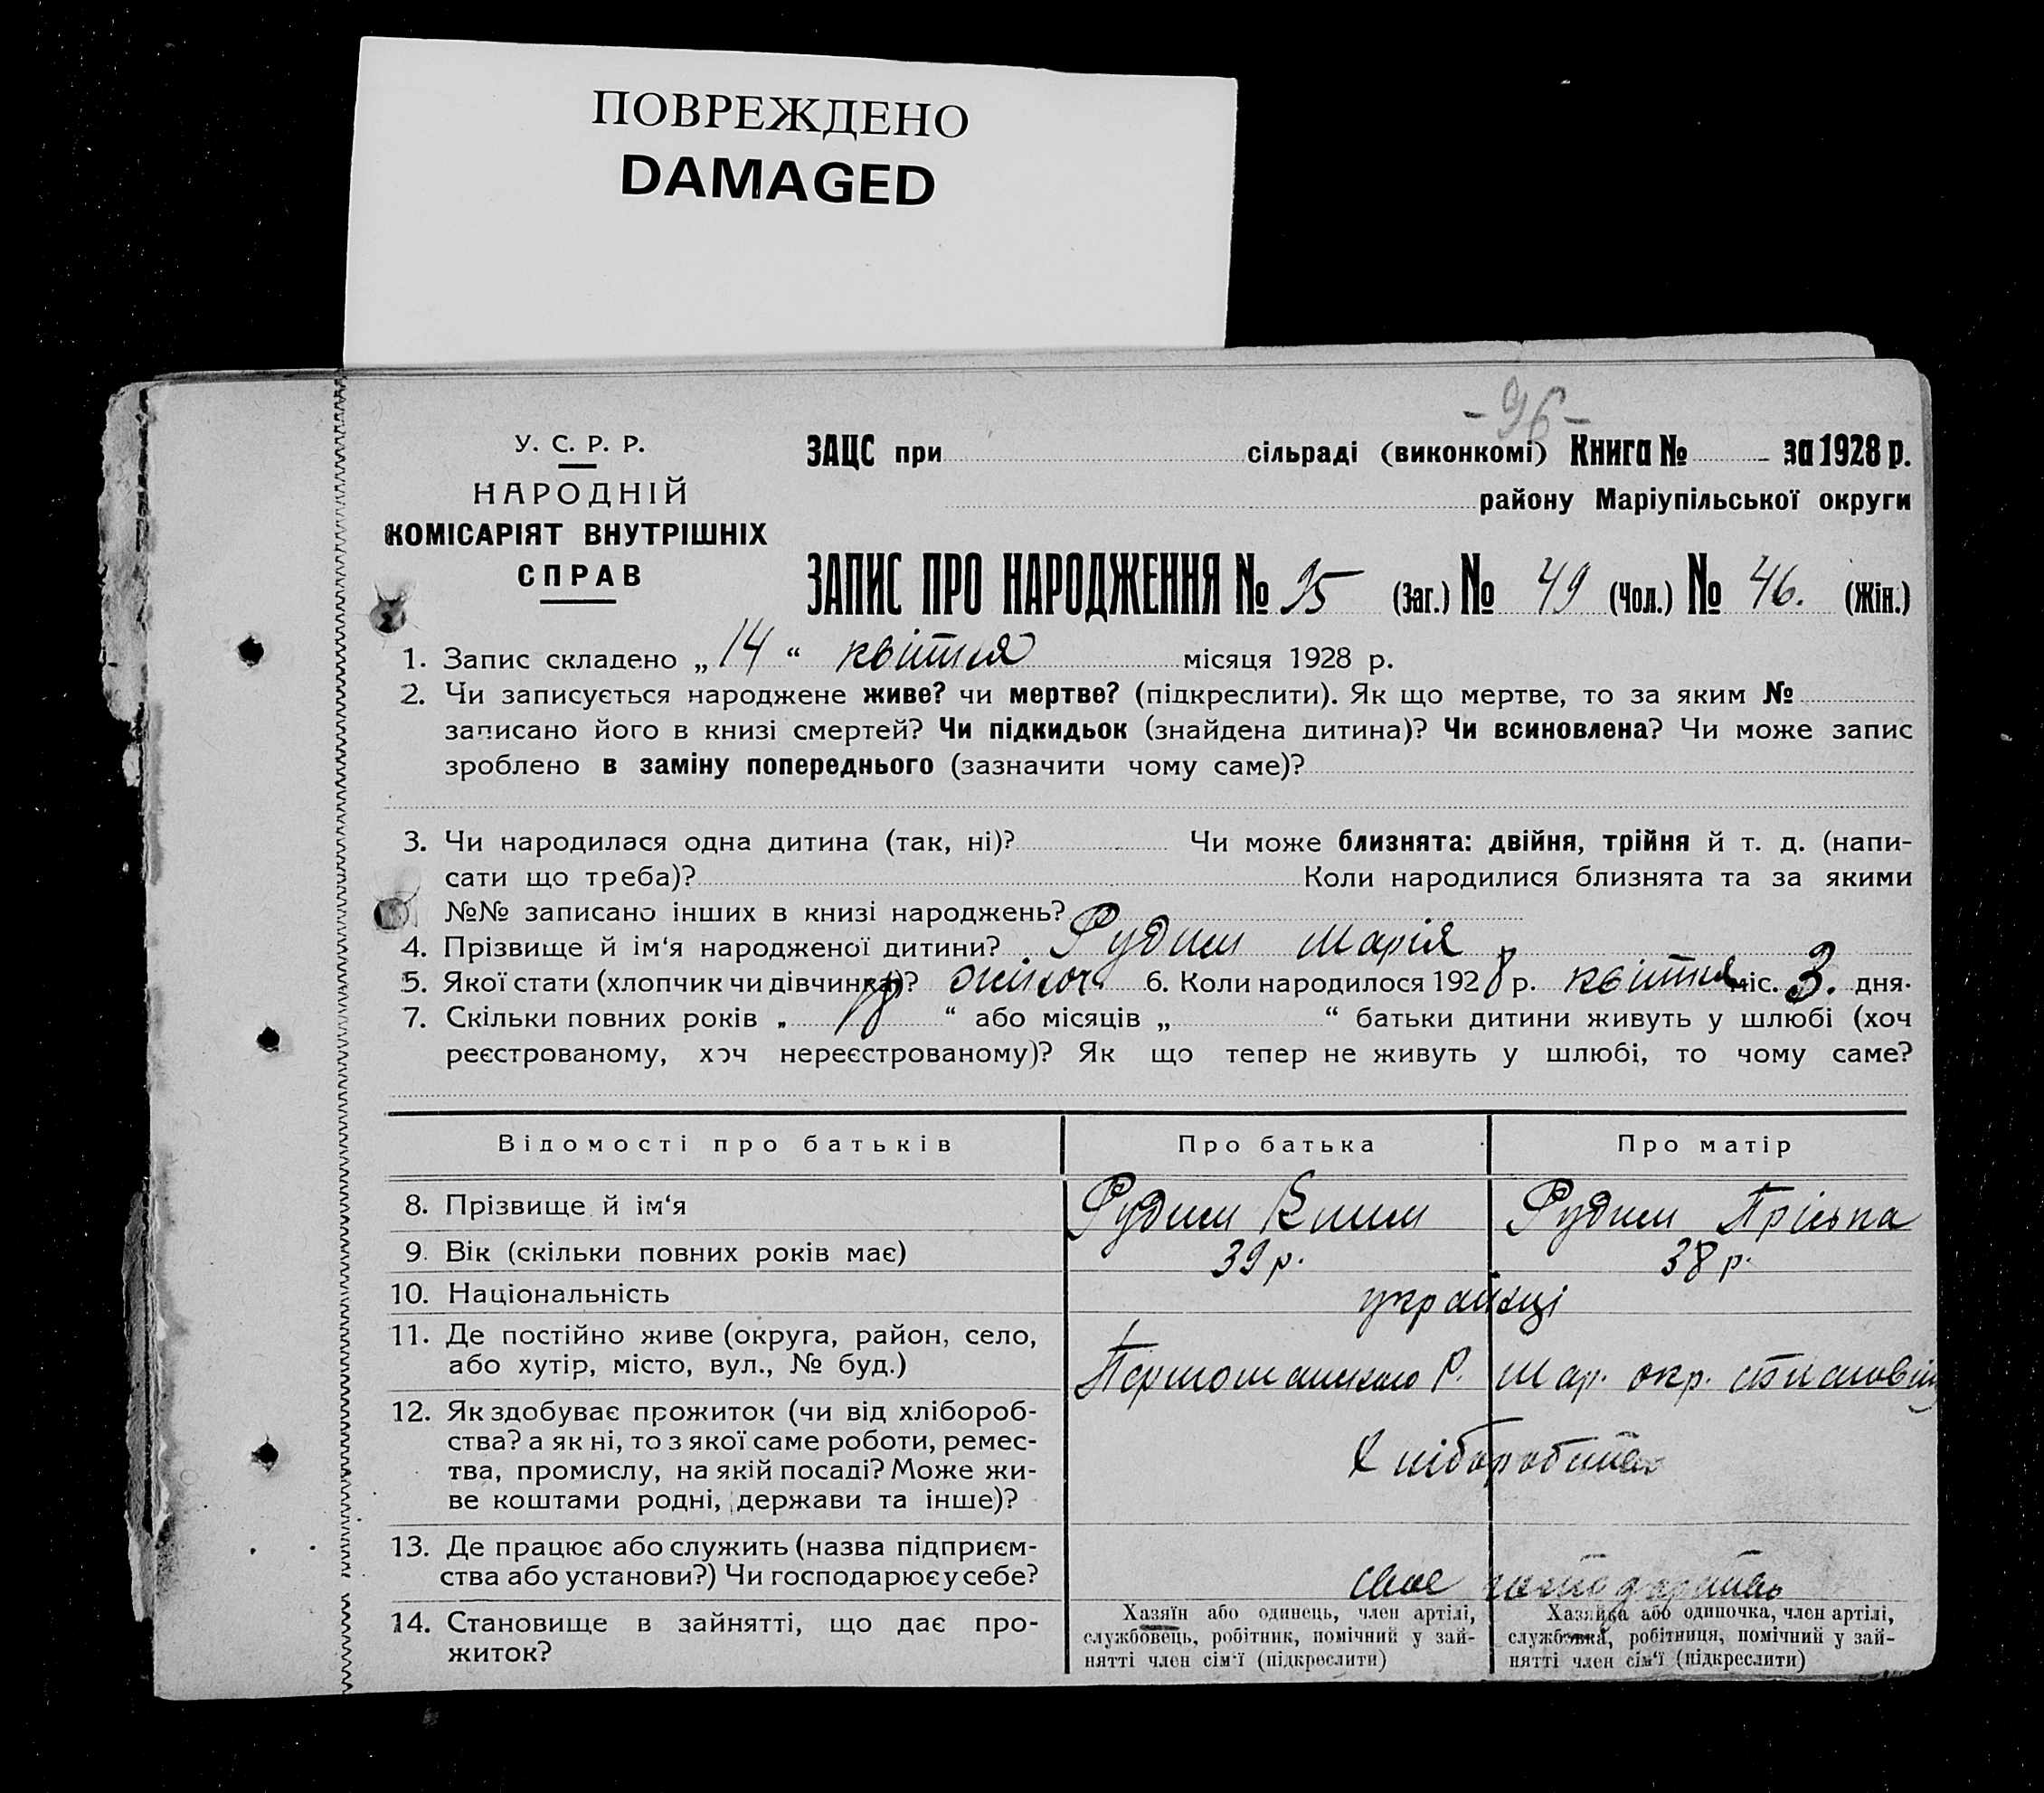 ПОВРЕЖДЕНО
DAMAGED
-96-
У. С. Р. Р.
НАРОДНІЙ
КОМІСАРІЯТ ВНУТРІШНІХ
СПРАВ
ЗАЦС при сільраді (виконкомі) Книга № за 1928 р.
району Маріупільської округи
ЗАПИС ПРО НАРОДЖЕННЯ № 95 (Заг.) № 49 (Чол.) № 46. (Жін.)
1. Запис складено „14“ квітня місяця 1928 р.
2. Чи записується народжене живе? чи мертве? (підкреслити). Як що мертве, то за яким №
записано його в книзі смертей? Чи підкидьок (знайдена дитина)? Чи всиновлена? Чи може запис
зроблено в заміну попереднього (зазначити чому саме)?
3. Чи народилася одна дитина (так, ні)? Чи може близнята: двійня, трійня й т. д. (напи-
сати що треба)? Коли народилися близнята та за якими
№№ записано інших в книзі народжень?
4. Прізвище й ім‘я народженої дитини? Рудим Марія
5. Якої стати (хлопчик чи дівчинка)? жіноч. 6. Коли народилося 1928 р. квітня міс. 3. дня.
7. Скільки повних років „18“ або місяців „ “ батьки дитини живуть у шлюбі (хоч
реєстрованому, хоч нереєстрованому)? Як що тепер не живуть у шлюбі, то чому саме?
Відомості про батьків Про батька Про матір
8. Прізвище й ім‘я Рудим Клим Рудим Пріська
9. Вік (скільки повних років має) 39 р. 38 р.
10. Національність українці
11. Де постійно живе (округа, район, село,
або хутір, місто, вул., № буд.) Р. Мар. окр.
12. Як здобуває прожиток (чи від хлібороб-
ства? а як ні, то з якої саме роботи, ремес-
тва, промислу, на якій посаді? Може жи-
ве коштами родні, держави та інше)? Хліборобством
13. Де працює або служить (назва підприєм-
ства або установи?) Чи господарює у себе? своє
14. Становище в зайнятті, що дає про-
житок?
Хазяїн або одинець, член артілі,
службовець, робітник, помічний у зай-
нятті член сім‘ї (підкреслити)
Хазяйка або одиночка, член артілі,
службовка, робітниця, помічний у зай-
нятті член сім‘ї (підкреслити)